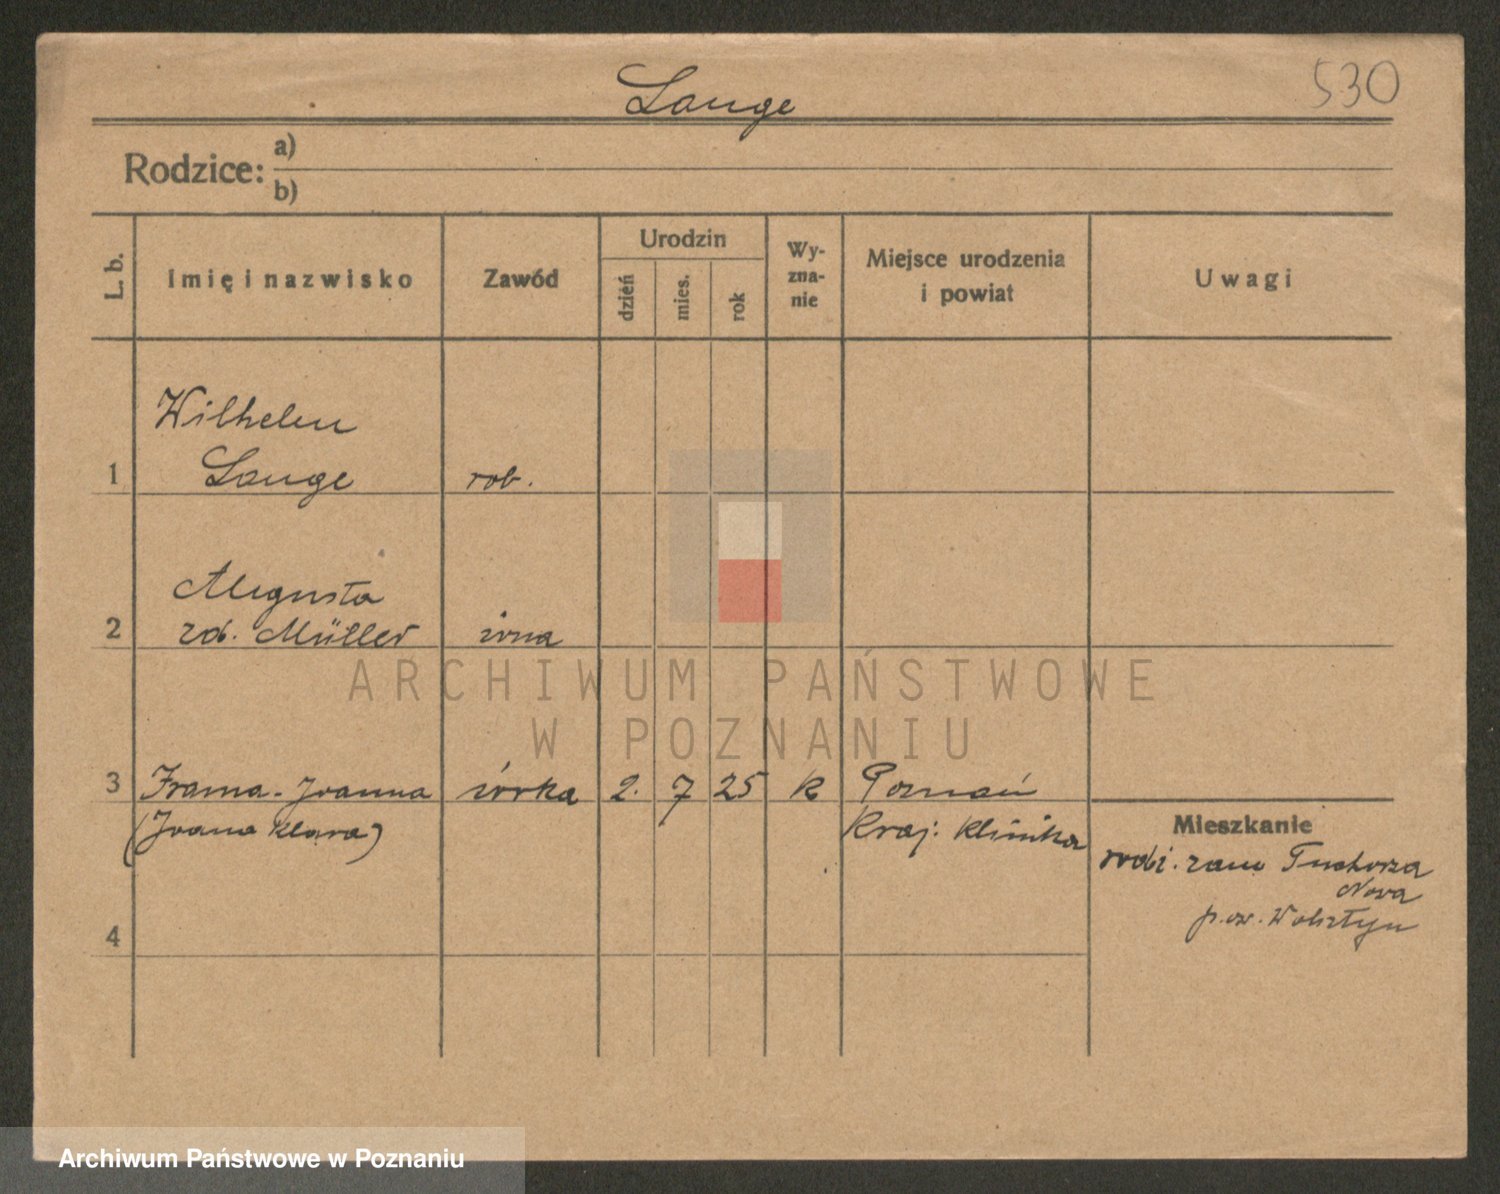 Lange
530
Rodzice:
a)
b)
L. b.
Imię i nazwisko
Zawód
Urodzin
dzień
mies.
rok
Wy-
zna-
nie
Miejsce urodzenia
i powiat
Uwagi
Wilhelm
1 Lange rob.
Augusta
2 zd. Müller żona
3 Joanna córka 2. 7 25 k Poznań
(Joana Klara) Kraj. Klinika
Mieszkanie
zam Tuchorza
Nova
pow. Wolsztyn
4
ARCHIWUM PAŃSTWOWE
W POZNANIU
Archiwum Państwowe w Poznaniu